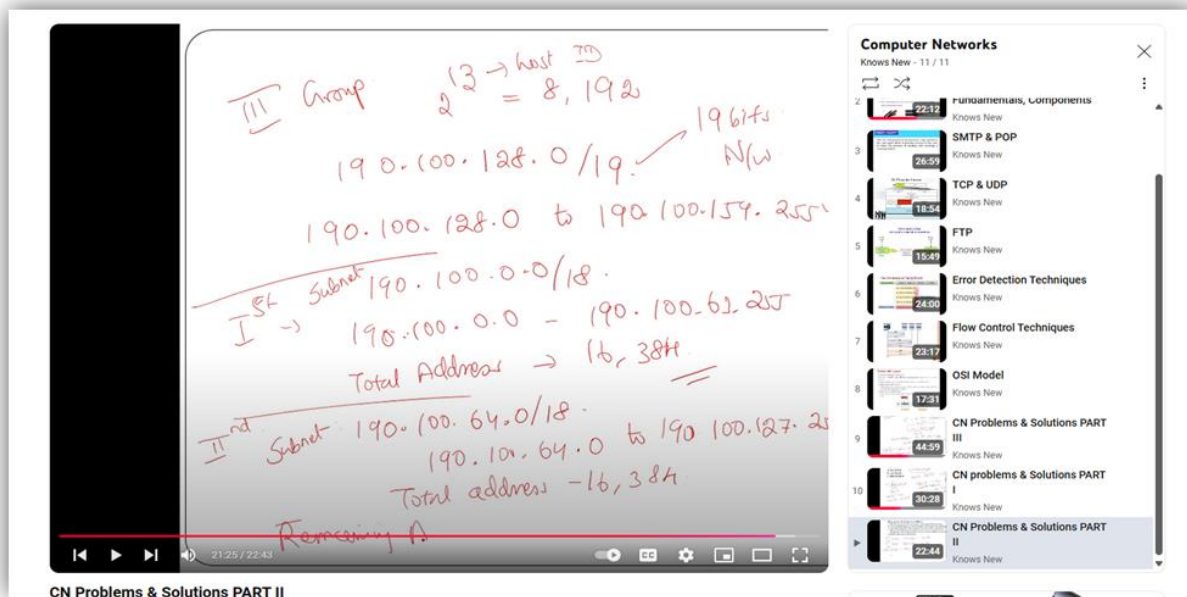 III Group 2^13 → host ID
= 8,192
190.100.128.0/19. 19 bits
N/w
190.100.128.0 to 190.100.159.255
Ist Subnet 190.100.0.0/18.
→ 190.100.0.0 - 190.100.63.255
Total Address → 16,384
IInd Subnet 190.100.64.0/18.
190.100.64.0 to 190.100.127.25
Total address - 16,384
Remaining A
21:25 / 22:43
CC
CN Problems & Solutions PART II
Computer Networks
Knows New - 11 / 11
2
22:12
Fundamentals, Components
Knows New
3
26:59
SMTP & POP
Knows New
4
18:54
TCP & UDP
Knows New
5
15:49
FTP
Knows New
6
24:00
Error Detection Techniques
Knows New
7
23:17
Flow Control Techniques
Knows New
8
17:31
OSI Model
Knows New
9
44:59
CN Problems & Solutions PART
III
Knows New
10
30:28
CN problems & Solutions PART
I
Knows New
22:44
CN Problems & Solutions PART
II
Knows New